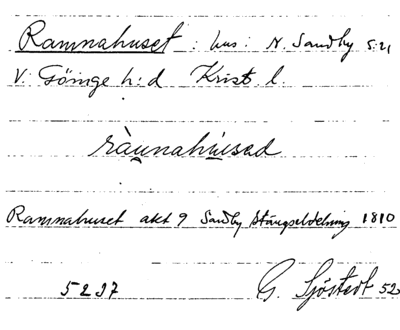 Ramnahuset : hus : N. Sandby 5:21
V. Göinge h:d Krist. l.
ràunahúsad
Ramnahuset akt 9 Sandby Stängseldelning 1810
5237
G. Sjöstedt 52